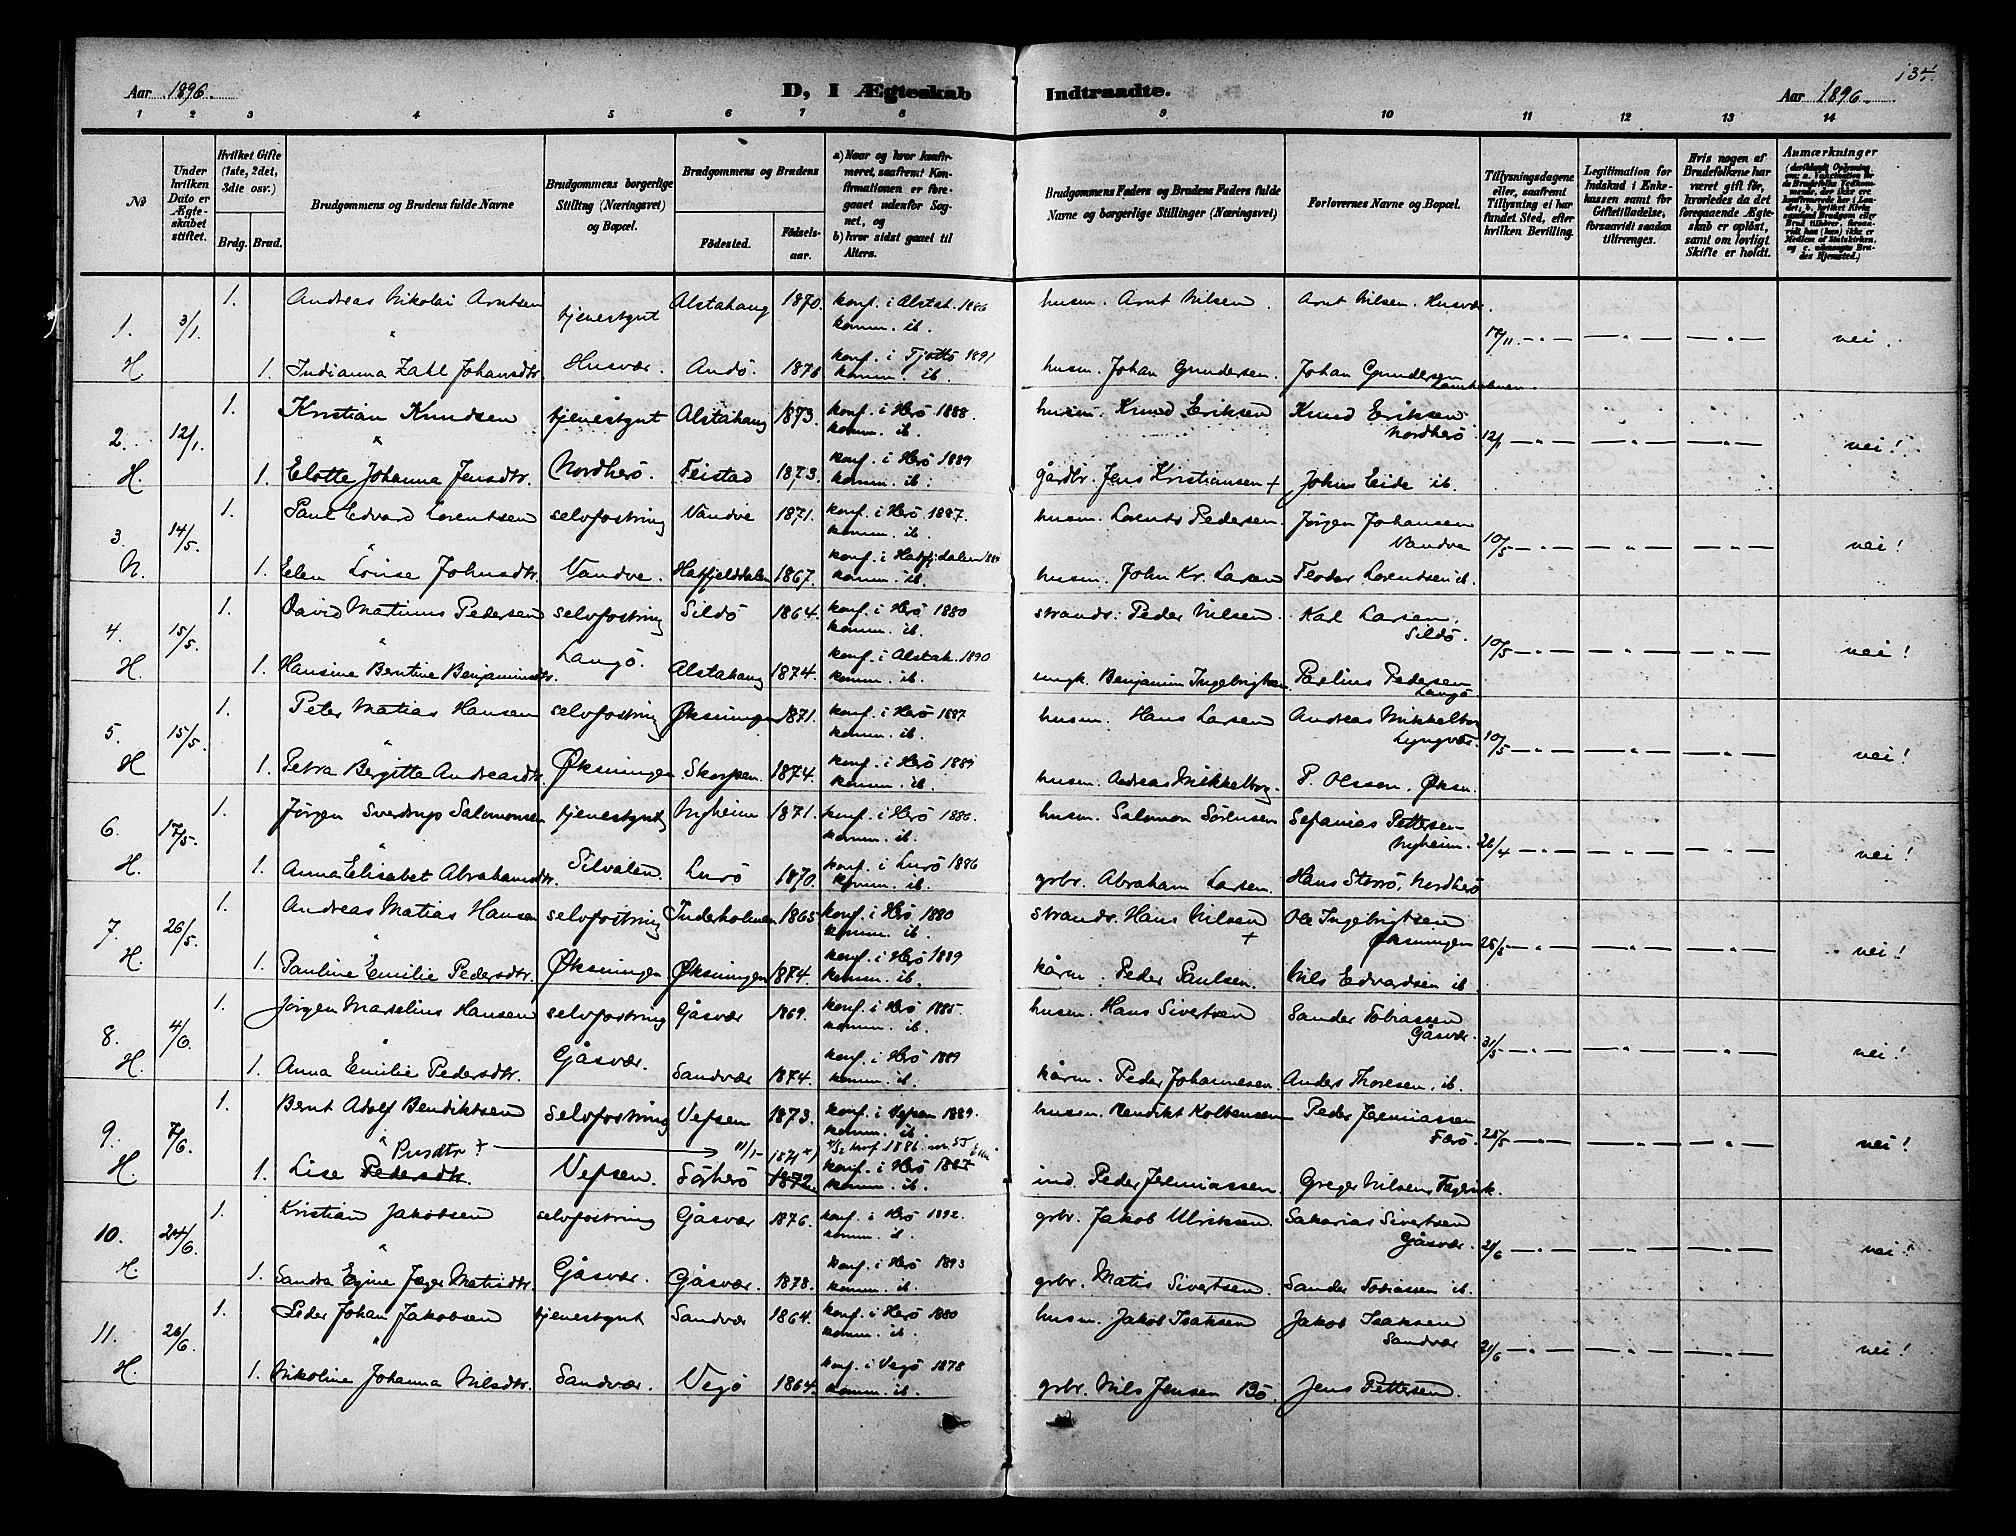 135.
Aar 1896.
D, I Ægteskab Indtraadte.
Aar 1896.
1 2 3 4 5 6 7 8 9 10 11 12 13 14
№
Under hvilken Dato er Ægteskabet stiftet.
Hvilket Gifte (1ste, 2det, 3die osv.)
Brdg. Brud.
Brudgommens og Brudens fulde Navne
Brudgommens borgerlige Stilling (Næringsvei) og Bopæl.
Brudgommens og Brudens
Födested. Födselsaar.
a) Naar og hvor konfirmeret, saafremt Konfirmationen er foregaaet udenfor Sognet, og
b) hvor sidst gaaet til Alters.
Brudgommens Faders og Brudens Faders fulde Navne og borgerlige Stillinger (Næringsvei)
Forlovernes Navne og Bopæl.
Tillysningsdagene eller, saafremt Tillysning ei har fundet Sted, efter hvilken Bevilling.
Legitimation for Indskud i Enkekassen samt for Giftetilladelse, forsaavidt saadan tiltrænges.
Hvis nogen af Brudefolkene har været gift för, hvorledes da det foregaaende Ægteskab er oplöst, samt om lovligt Skifte er holdt.
Anmærkninger
1. 3/1 1. Andreas Nikolai Arntsen tjenestgut Alstahaug 1870. konf. i Alstah. 1886 komm. ib. husm. Arnt Nilsen. Arnt Nilsen. Husvær 17/11. — " — — " — — " — nei.
H 1. Indianna Zahl Johansdtr. Husvær. Andö. 1876 konf. i Tjöttö 1891 komm. ib. husm. Johan Gundersen. Johan Gundersen
2. 12/1 1. Kristian Knudsen tjenestgut Alstahaug 1873. konf. i Herö 1888 komm. ib. husm. Knud Eriksen Knud Eriksen Nordherö 12/1 — " — — " — — " — nei!
H. 1. Elotte Johanna Jensdtr. Nordherö. Feistad 1873. konf. i Herö 1889 komm. ib. gårdbr. Jens Kristiansen + Johns Eide ib.
3. 14/5. 1. Paul Edvard Lorentsen selvfostring Vandve 1871. konf. i Herö 1887. komm. ib. husm. Lorents Pedersen. Jörgen Johansen Vandve 10/5 — " — — " — — " — nei!
N. 1. Elen Lovise Johnsdtr. Vandve. Hatfjelddalen 1867. konf. i Hatfjdalen komm. ib. husm. John Kr. Larsen Teodor Lorendsen ib.
4. 15/5. 1. David Matinus Pedersen selvfostring Sildö 1864. konf. i Herö 1880 komm. ib. strands. Peder Nilsen. Karl Larsen, Sildö. 10/5 — " — — " — — " — nei!
H. 1. Hansine Berntine Benjaminsdtr. Langö. Alstahaug 1874. konf. i Alstah. 1890 komm. ib. ungk. Benjamin Ingebrigtsen Paulius Pedersen Langö
5. 15/5. 1. Peter Matias Hansen selvfostring Øksningen 1871. konf. i Herö 1887 komm. ib. husm. Hans Larsen Andreas Mikkelborg Lyngvær. 10/5 — " — — " — — " — nei!
H 1. Petra Bergitta Andreasdtr. Øksningen Skorpen 1874. konf. i Herö 1889 komm. ib. husm. Andreas Mikkelborg. P. Olsson, Øksn.
6. 17/5. 1. Jörgen Sverdrup Salomonsen tjenestgut Nyheim 1871. konf. i Herö 1886. komm. ib. husm. Salomon Sörensen Sefanias Pettersen Nyheim. 26/4 — " — — " — — " — nei!
H. 1. Anna Elisabet Abrahamsdtr. Silvalen. Lurö 1870. konf. i Lurö 1886 komm. ib. grbr. Abraham Larsen. Hans Storrö, Nordherö
7. 26/5. 1. Andreas Matias Hansen selvfostring Inderholmen 1865 konf. i Herö 1880 komm. ib. strands. Hans Nilsen + Ole Ingebrigtsen Øksningen 25/5 — " — — " — — " — nei!
H. 1. Pauline Emilie Pedersdtr. Øksningen Øksningen 1874. konf. i Herö 1889 komm. ib. kårm. Peder Paulsen. Nils Edvardsen ib
8. 4/6. 1. Jörgen Maselius Hansen selvfostring Gåsvær 1869. konf. i Herö 1885 komm. ib. husm. Hans Sivertsen Sander Tobiassen Gåsvær. 31/5 — " — — " — — " — nei!
H. 1. Anna Emilie Pedersdtr. Gåsvær. Sandvær 1874. konf. i Herö 1889 komm. ib. kårm. Peder Johannesen. Anders Thoresen, ib.
9. 7/6. 1. Bernt Adolf Bendiktsen selvfostring Vefsen 1873. konf. i Vefsen 1889. komm. ib. husm. Bendikt Kolbensen Peder Jeremiassen Færö. 25/5 — " — — " — — " — nei!
H. 1. Lise Pedersdtr. Vefsen. Sörherö 1872. konf. i Herö 1887 komm. ib. ind. Peder Jeremiassen. Greger Nilsen, Fagervik.
10. 24/6. 1. Kristian Jakobsen selvfostring Gåsvær 1876. konf. i Herö 1892. komm. ib. grbr. Jakob Ulriksen. Sakarias Sivertsen Gåsvær. 21/6 — " — — " — — " — nei!
H. 1. Sandra Egine Jæger Matisdtr. Gåsvær. Gåsvær. 1878. konf. i Herö 1893 komm. ib. grbr. Matis Sivertsen. Sander Tobiassen ib.
11. 26/6. 1. Peder Johan Jakobsen tjenestgut Sandvær 1864. konf. i Herö 1880 komm. ib. husm. Jakob Isaksen Jakob Isaksen Sandvær 21/6 — " — — " — — " — nei!
H. 1. Nikoline Johanna Nilsdtr. Sandvær. Vegö 1864. konf. i Vegö 1878 komm. ib. grbr. Nils Jensen Bö. Jens Pettersen.